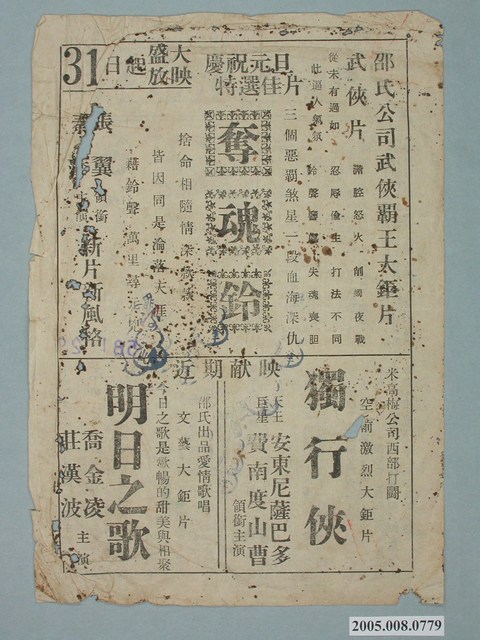 邵氏公司武俠霸王大鉅片
武俠片
從未有過如
此逼人氣氛
慶祝元旦
特選佳片
盛大
放映
31日起
奪魂鈴
三個惡霸煞星一段血海深仇
忍辱偷生打法不同
鈴聲
失魂喪胆
捨命相隨情深
皆因同是淪落天涯
藉鈴聲萬里尋
張翼
領銜
主演
新片新風格
近期献映
米高梅公司西部打鬪
空前激烈大鉅片
獨行俠
巨星
安東尼薩巴多
費南度山曹
領銜主演
邵氏出品愛情歌唱
文藝大鉅片
今日之歌是歡暢的甜美與相聚
明日之歌
喬金凌
莊漢波
主演
2005.008.0779